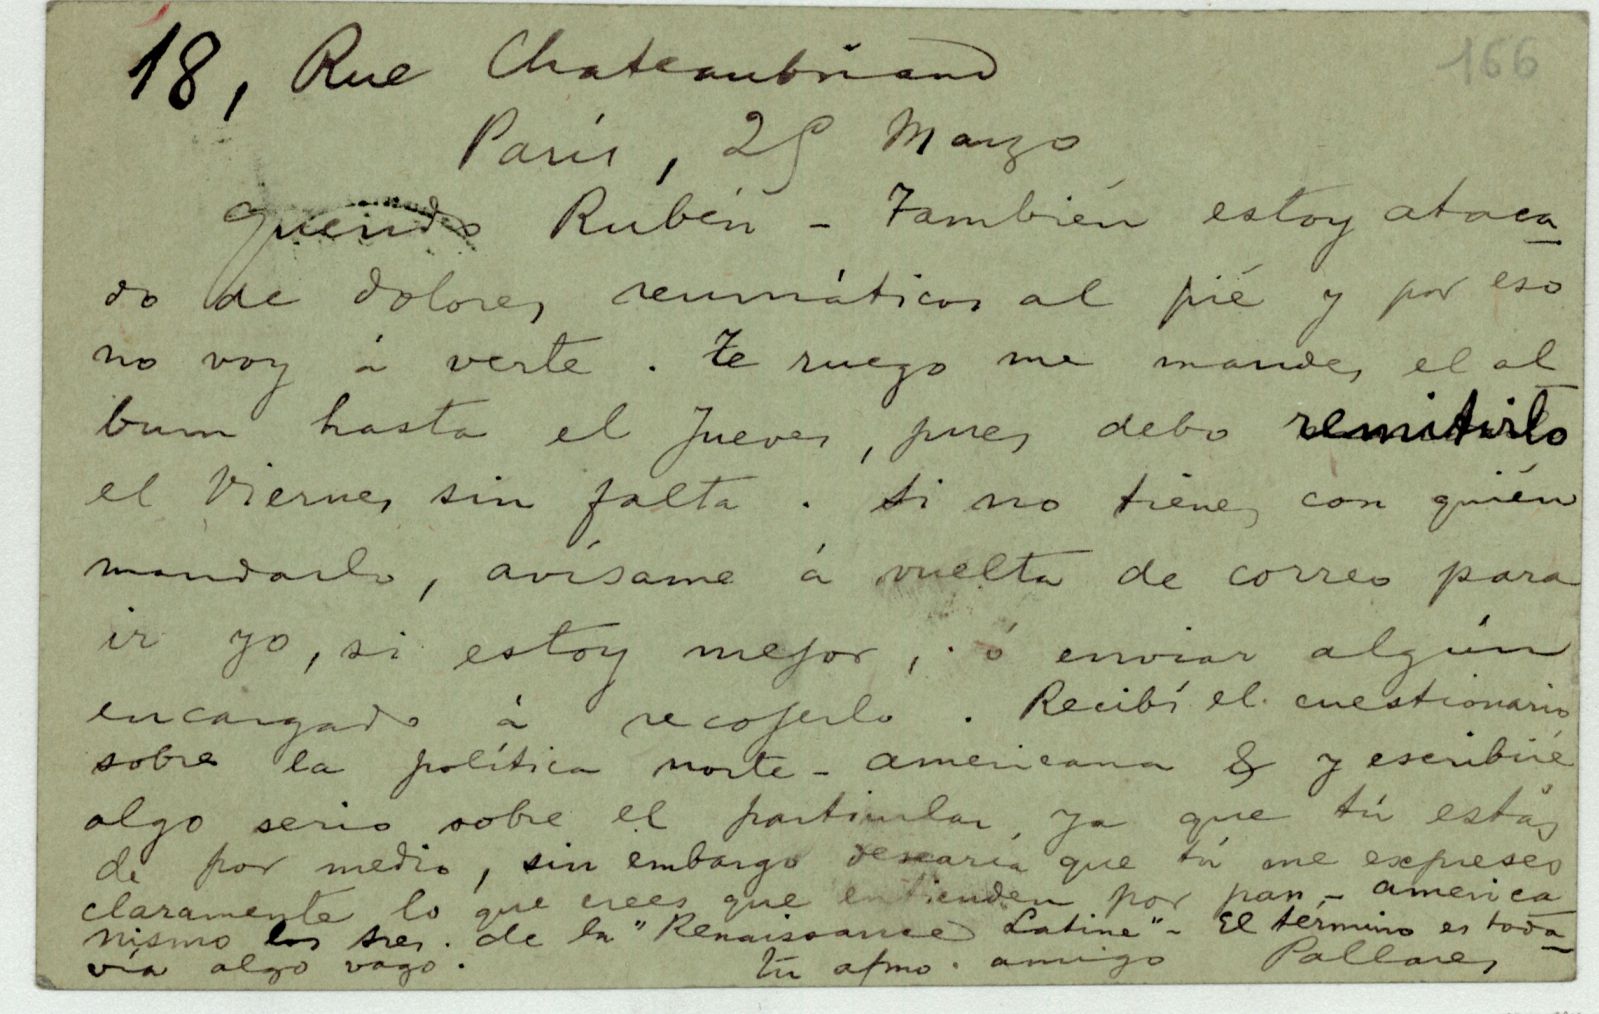 166
18, Rue Chateaubriand
París, 25 Marzo
Querido Rubén - También estoy ataca
do de dolores reumáticos al pié y por eso
no voy á verte. Te ruego me mandes el al
bum hasta el Jueves, pues debo remitirlo
el Viernes sin falta. Si no tienes con quién
mandarlo, avísame á vuelta de correo para
ir yo, si estoy mejor, ó enviar algún
encargado á recojerlo. Recibí el cuestionario
sobre la política norte-americana & y escribiré
algo serio sobre el particular, ya que tú estás
de por medio, sin embargo desearía que tú me expreses
claramente lo que crees que entienden por pan-america
nismo los sres. de la "Renaissance Latine" - El término es toda
vía algo vago.
tu afmo. amigo Pallares